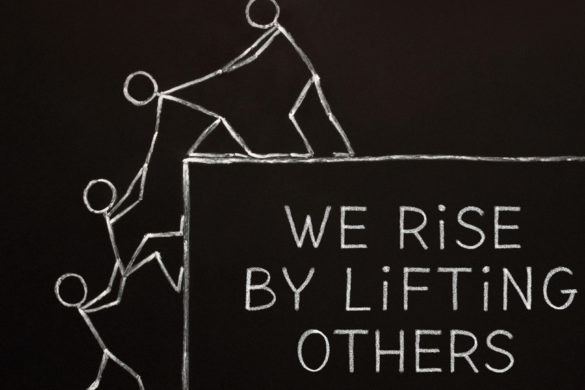 WE RiSE
BY LiFTiNG
OTHERS